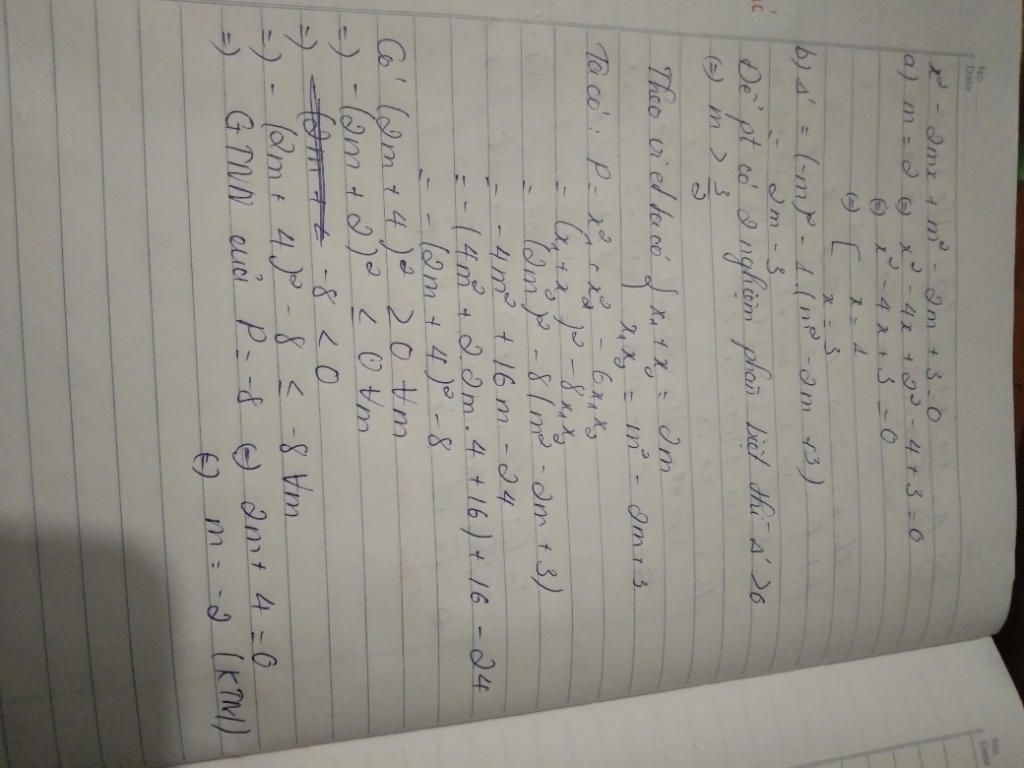 No
Date
x² - 2mx + m² - 2m + 3 = 0
a) m = 2 (=) x² - 4x + 2² - 4 + 3 = 0
(=) x² - 4x + 3 = 0
(=) [ x = 1
x = 3
b) Δ' = (-m)² - 1.(m² - 2m + 3)
= 2m - 3
Để pt có 2 nghiệm phân biệt thì Δ' > 0
(=) m > 3/2
Theo vi et ta có { x₁ + x₂ = 2m
x₁x₂ = m² - 2m + 3
Ta có: P = x₁² + x₂² - 6x₁x₂
= (x₁ + x₂)² - 8x₁x₂
= (2m)² - 8(m² - 2m + 3)
= -4m² + 16m - 24
= -(4m² + 2.2m.4 + 16) + 16 - 24
= -(2m + 4)² - 8
Có (2m + 4)² ≥ 0 ∀m
=) -(2m + 2)² ≤ 0 ∀m
=) -8 < 0
=) -(2m + 4)² - 8 ≤ -8 ∀m
=) GTNN của P = -8 (=) 2m + 4 = 0
(=) m = -2 (KTM)
No
Date